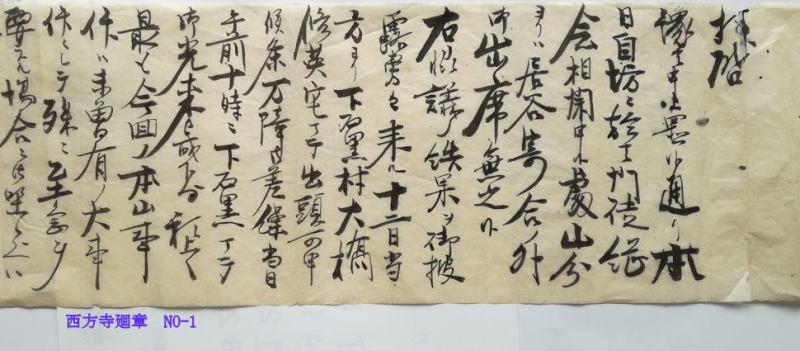 拝啓
豫テ申上置候通リ本
日自坊ニ於テ門徒総
会相開申候處山分
ヨリハ居谷寄合ノ外
御出席無之候
右協議ノ結果ヲ御披
露旁々来ル十二日当
方ヨリ下石黒村大橋
修英宅マデ出頭可申
候条万障御差繰当日
午前十時ニ下石黒マデ
御光来被成下度
最も今回ノ本山事
件ハ未曽有ノ大事
件ニシテ殊ニ至急ヲ
要スル場合ニ
西方寺廻章 NO-1